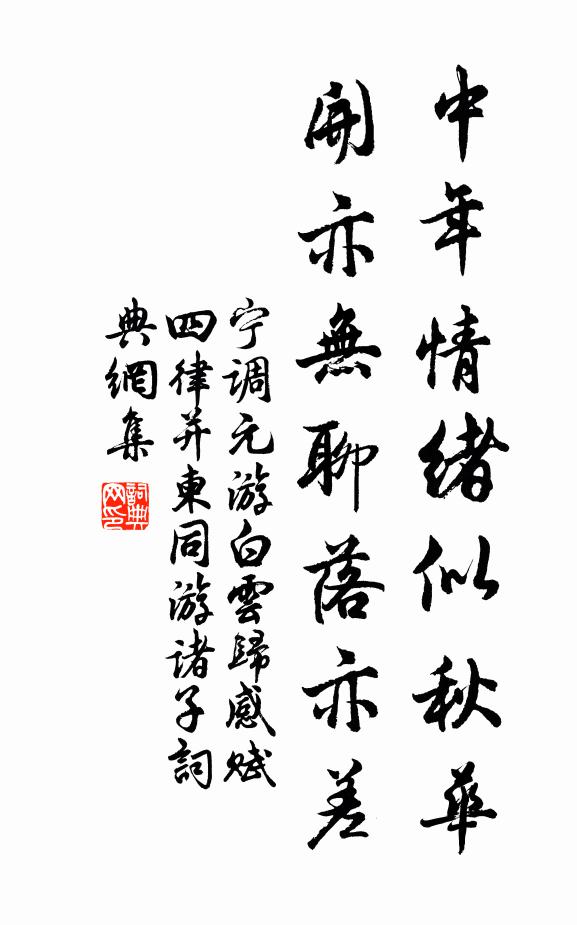 中年情緒似秋華
開亦無聊落亦差
宁調元游白雲歸感賦
四律并柬同游诸子詞
典網集
詞典
网印